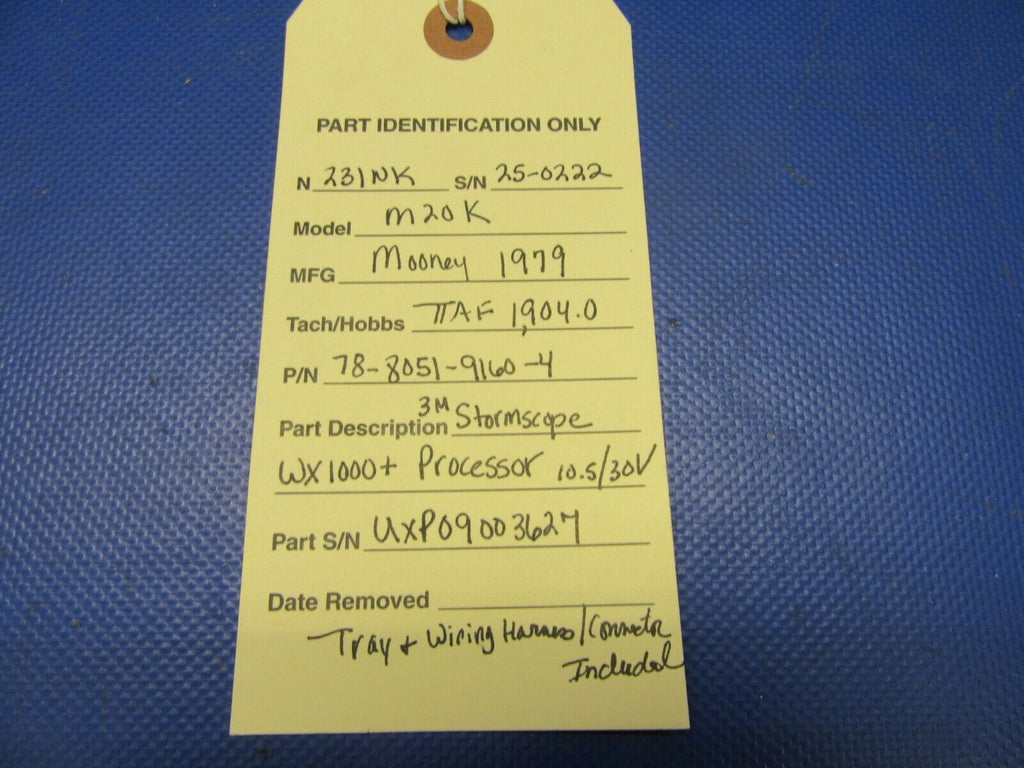 PART IDENTIFICATION ONLY
N 231NK S/N 25-0222
Model M20K
MFG Mooney 1979
Tach/Hobbs TTAF 1,904.0
P/N 78-8051-9160-4
Part Description 3M Stormscope
WX1000+ Processor 10.5/30V
Part S/N UXP09003627
Date Removed
Tray + Wiring Harness/Connector
Included